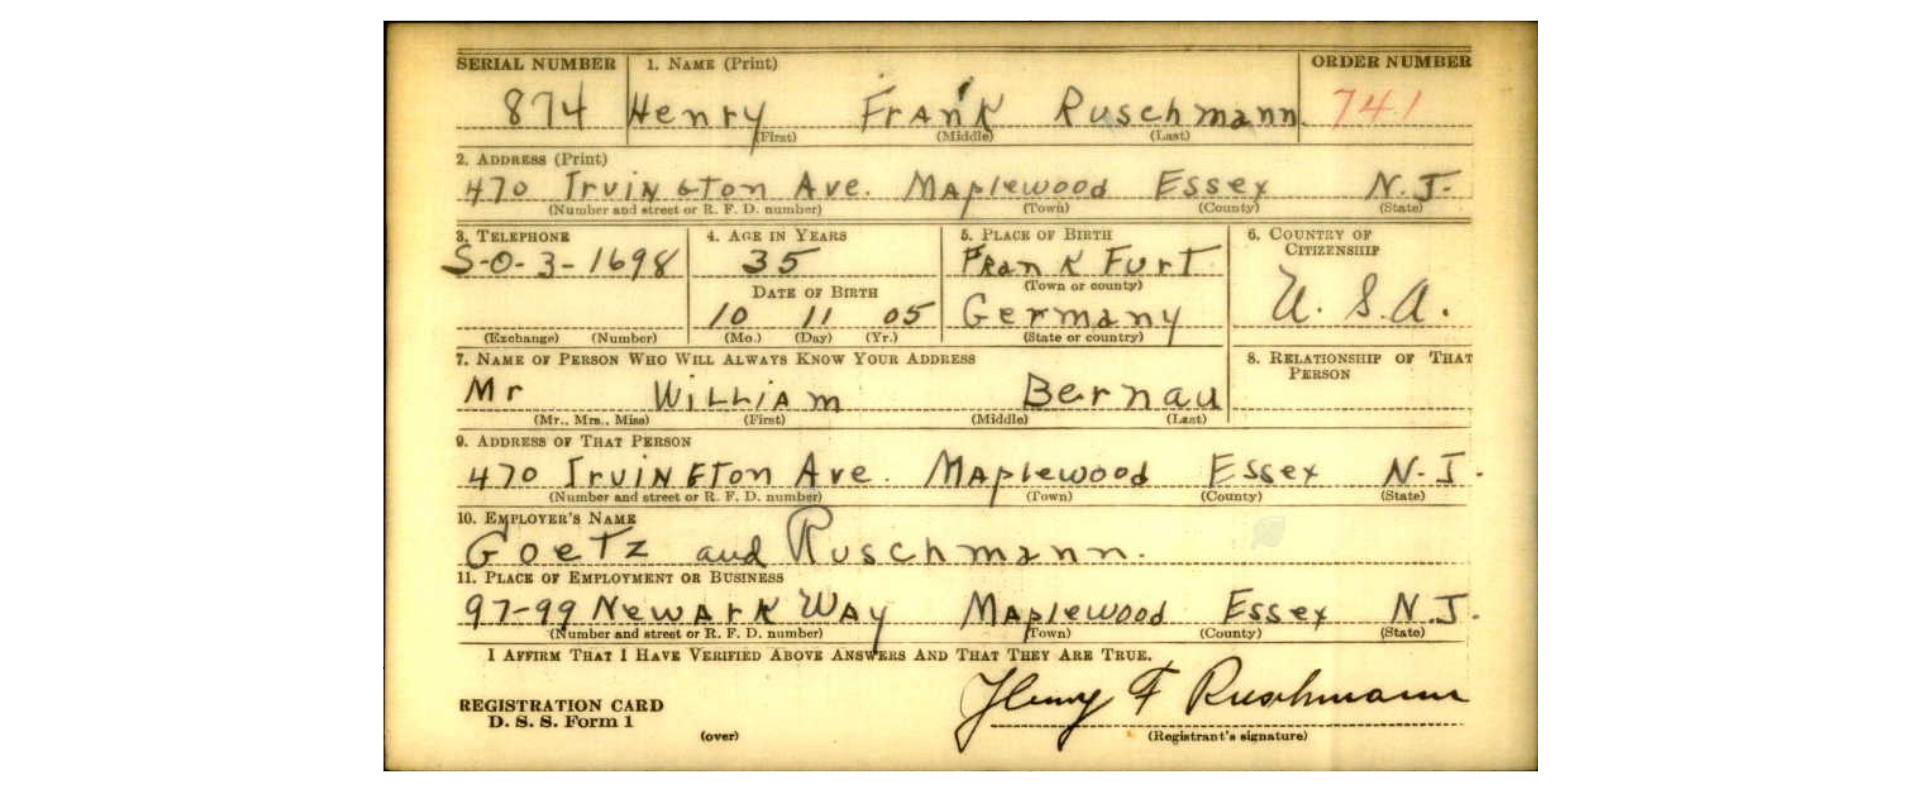 SERIAL NUMBER 1. NAME (Print) ORDER NUMBER
874 Henry Frank Ruschmann. 741
(First) (Middle) (Last)
2. ADDRESS (Print)
470 Irvington Ave. Maplewood Essex N.J.
(Number and street or R. F. D. number) (Town) (County) (State)
3. TELEPHONE 4. AGE IN YEARS 5. PLACE OF BIRTH 6. COUNTRY OF
CITIZENSHIP
S-O-3-1698 35 FRankFurt
(Town or county)
DATE OF BIRTH
10 11 05 Germany U.S.A.
(Exchange) (Number) (Mo.) (Day) (Yr.) (State or country)
7. NAME OF PERSON WHO WILL ALWAYS KNOW YOUR ADDRESS 8. RELATIONSHIP OF THAT
PERSON
Mr William Bernau
(Mr., Mrs., Miss) (First) (Middle) (Last)
9. ADDRESS OF THAT PERSON
470 Irvington Ave. Maplewood Essex N.J.
(Number and street or R. F. D. number) (Town) (County) (State)
10. EMPLOYER'S NAME
Goetz and Ruschmann.
11. PLACE OF EMPLOYMENT OR BUSINESS
97-99 Newark Way Maplewood Essex N.J.
(Number and street or R. F. D. number) (Town) (County) (State)
I AFFIRM THAT I HAVE VERIFIED ABOVE ANSWERS AND THAT THEY ARE TRUE.
REGISTRATION CARD
D. S. S. Form 1
Henry F Ruschmann
(over) (Registrant's signature)